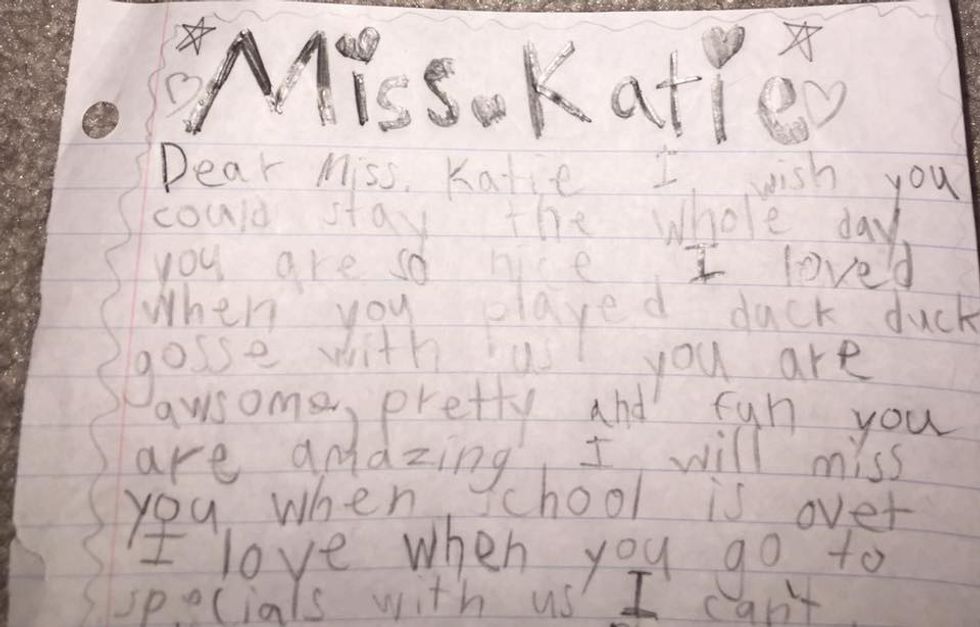 Miss. Katie
Dear Miss. Katie I wish you
could stay the whole day,
you are so nice I loved
when you played duck duck
gosse with us! you are
awsome, pretty and fun you
are amazing, I will miss
you when school is over
I love when you go to
specials with us I can't